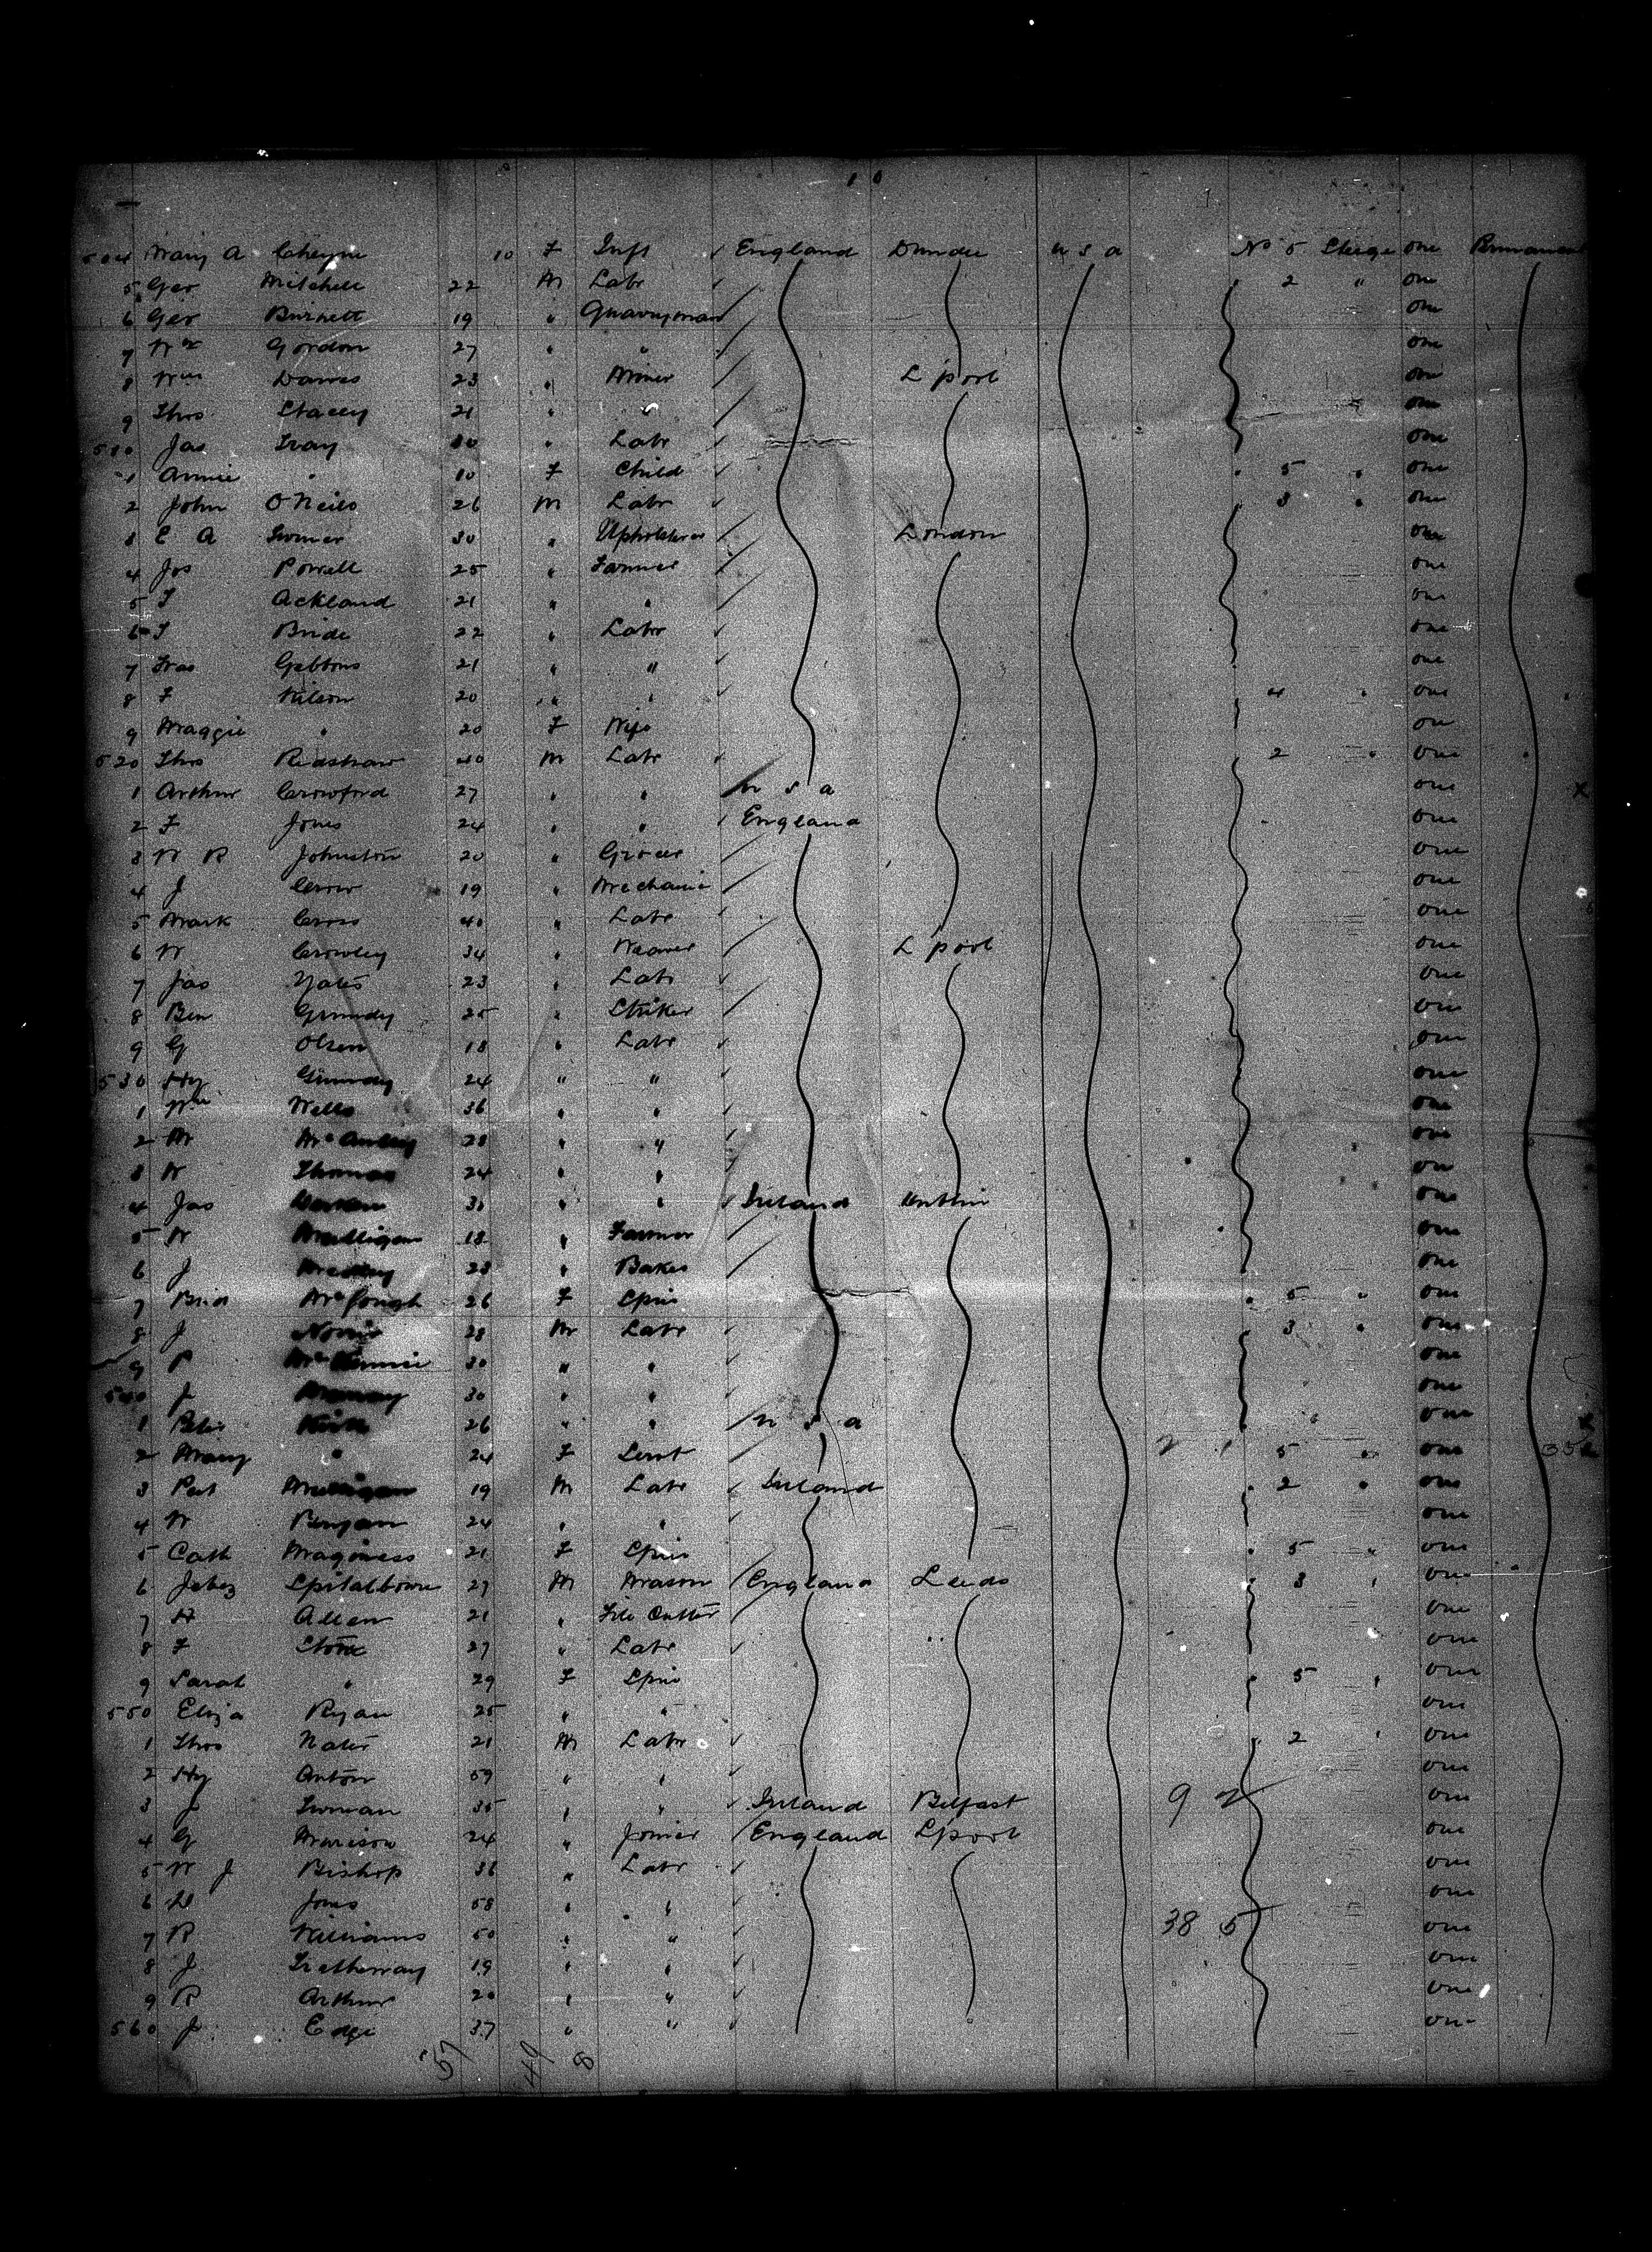 10
504 Mary A Cheyne 10 F Inft England Dundee U S A No 5 Steege one Permanent
5 Geo Mitchell 22 M Labr 2 " one
6 Geo Burnett 19 " Quarryman one
7 Wm Gordon 27 " " one
8 Wm Davies 23 " Miner L'pool one
9 Thos Stacey 21 " " one
510 Jas Gray 30 " Labr one
1 Annie " 10 F Child 5 " one
2 John O'Neill 26 M Labr 3 " one
3 E A 30 " Upholsterer London one
4 Jos Powell 25 " Farmer one
5 Ackland 21 " " one
6 Bride 22 " Labr one
7 Gibbons 21 " " one
8 F Wilson 20 " " 4 " one
9 Maggie " 20 F Wife one
520 Thos Redshaw 40 M Labr 2 " one
1 Arthur Crowford 27 " " U S A one x
2 F Jones 24 " " England one
3 W R Johnston 20 " Grocer one
4 J Crow 19 " Mechanic one
5 Mark Cross 40 " Labr one
6 W Crowley 34 " Weaver L'pool one
7 Jas Yates 23 " Labr one
8 Ben Grundy 25 " Striker one
9 G Olsen 18 " Labr one
530 Hy Grundy 24 " " one
1 Wm Wells 36 " " one
2 M McAuley 28 " " one
3 W Thomas 24 " " one
4 Jas 30 " " Ireland Dublin one
5 W Mulligan 18 " Farmer one
6 J 23 " Baker one
7 Brid McGough 26 F Spin 5 " one
8 J Norris 28 M Labr 3 " one
9 P 30 " " one
540 J 30 " " one
1 Peter Kirk 26 " " U S A one x
2 Mary " 24 F Servt 2 1 5 " one
3 Pat Mulligan 19 M Labr Ireland 2 " one
4 W 24 " " one
5 Cath Maginess 21 F Spin 5 " one
6 Jabez Spitalbown 27 M Mason England Leeds 3 " one
7 H Allen 21 " File Cutter one
8 F Stone 27 " Labr one
9 Sarah " 29 F Spin 5 " one
550 Eliza Ryan 25 " " one
1 Thos 21 M Labr 2 " one
2 Hy Anton 59 " " one
3 J 35 " " Ireland Belfast 9 2 one
4 G Marison 24 " Joiner England Lpool one
5 W J Bishop 36 " Labr one
6 Jones 58 " " one
7 R Williams 50 " " 38 5 one
8 J Trethewey 19 " " one
9 R Arthur 20 " " one
560 J Edge 37 " " one
57 49 8